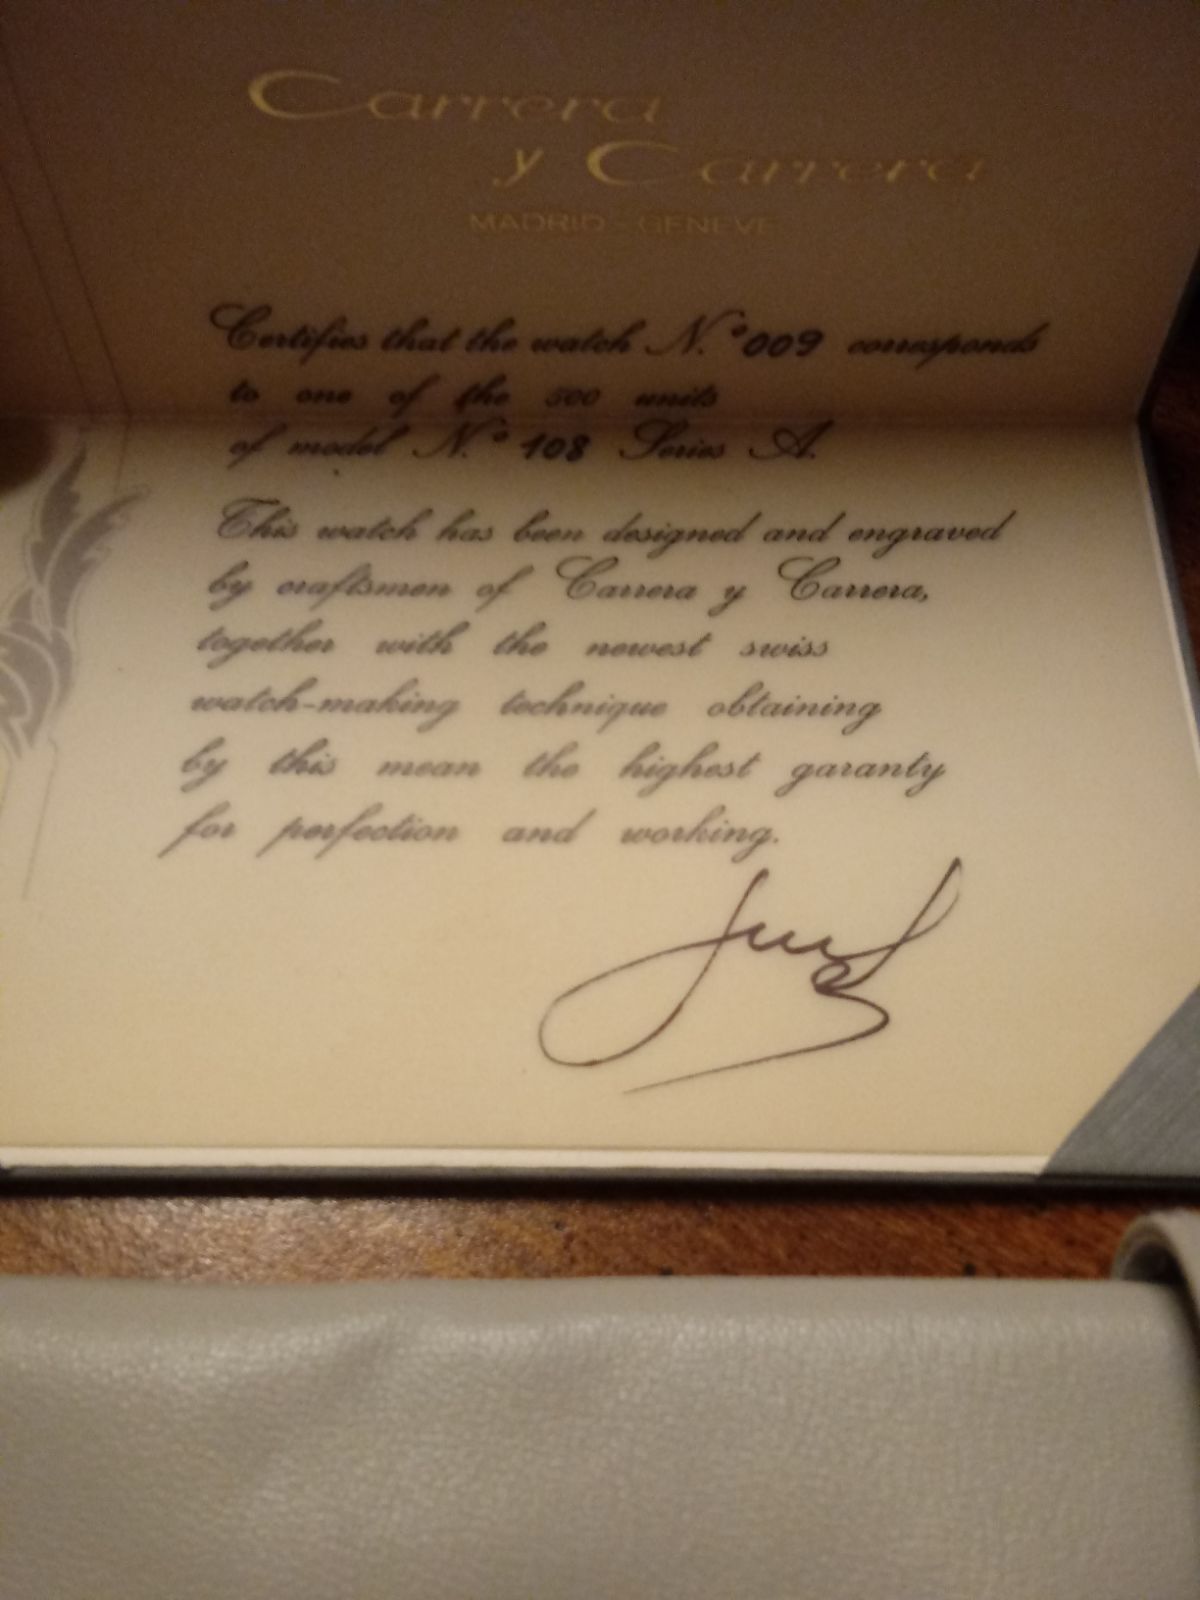 Carrera
y Carrera
MADRID - GENEVE
Certifies that the watch N.º 009 corresponds
to one of the 500 units
of model N.º 108 Series A.
This watch has been designed and engraved
by craftsmen of Carrera y Carrera,
together with the newest swiss
watch-making technique obtaining
by this mean the highest garanty
for perfection and working.